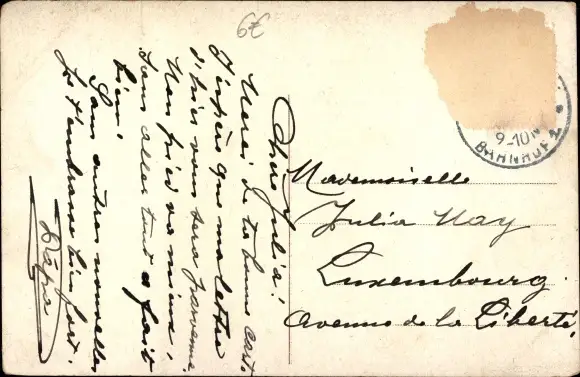 6€
Chère Julia!
Merci de ta bonne cart.
J'espère que ma lettre
d'hier vous sera parvenue.
Mon pied va mieux,
sans aller tout à fait
bien.
Sans autres nouvelles
je t'embrasse bien fort.
Papa
9-10N
BAHNHOF 2
Mademoiselle
Julia May
Luxembourg.
Avenue de la Liberté,